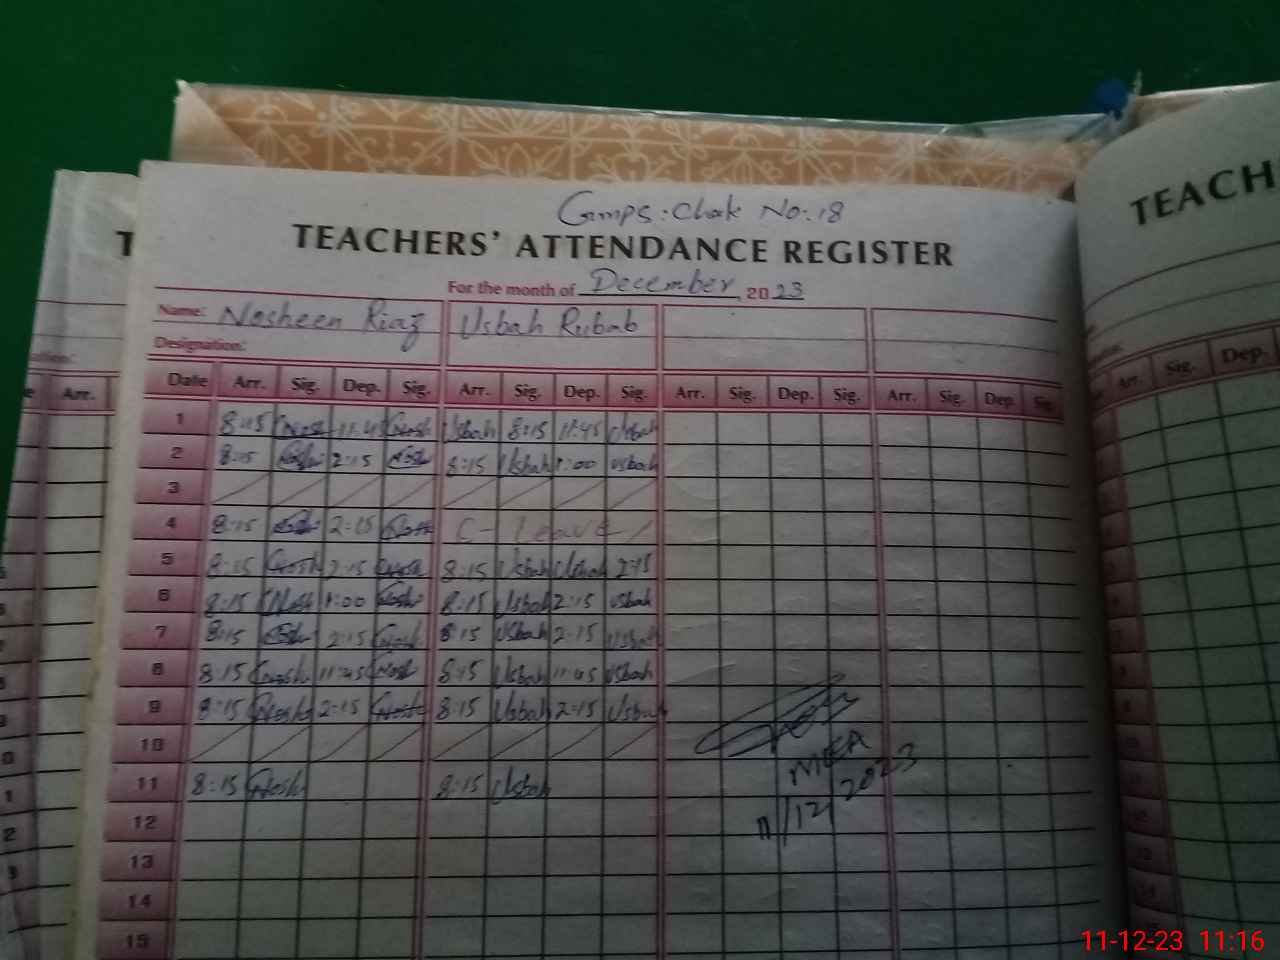 Gmps: Chak No: 18
TEACHERS' ATTENDANCE REGISTER
For the month of December, 2023
Name: Nosheen Riaz Usbah Rubab
Designation:
Date Arr. Sig. Dep. Sig. Arr. Sig. Dep. Sig. Arr. Sig. Dep. Sig. Arr. Sig. Dep. Sig.
1 8:15 Nosh 11:45 Nosh Usbah 8:15 11:45 Usbah
2 8:15 Nosh 2:15 Nosh 8:15 Usbah 1:00 Usbah
3
4 8:15 2:15 Nosh C- Leave
5 8:15 Nosh 2:15 Nosh 8:15 Usbah Usbah 2:15
6 8:15 Nosh 1:00 Nosh 8:15 Usbah 2:15 Usbah
7 8:15 Nosh 2:15 Nosh 8:15 Usbah 2:15 Usbah
8 8:15 Nosh 11:45 Nosh 8:15 Usbah 11:45 Usbah
9 8:15 Nosh 2:15 Nosh 8:15 Usbah 2:15 Usbah
10
11 8:15 Nosh 8:15 Usbah
12
13
14
15
MEA
11/12/2023
TEACH
Arr. Sig. Dep.
Arr.
11-12-23 11:16